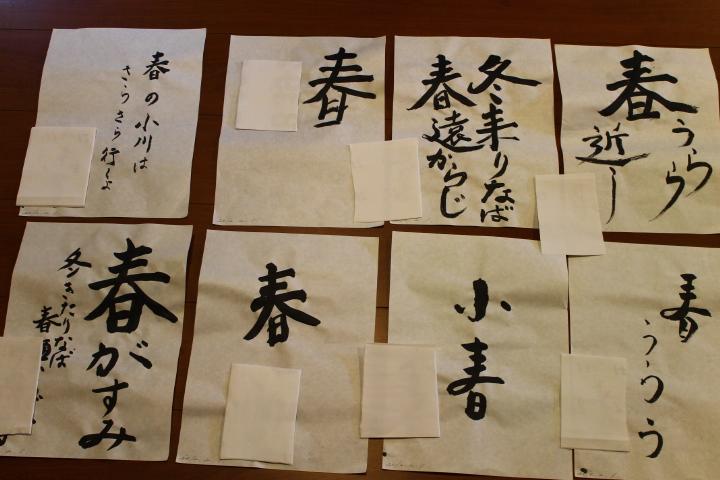 春の小川は
さらさら行くよ
春
冬来りなば
春遠からじ
春うらら
近し
春がすみ
冬きたりなば
春
春
小春
春
うらら